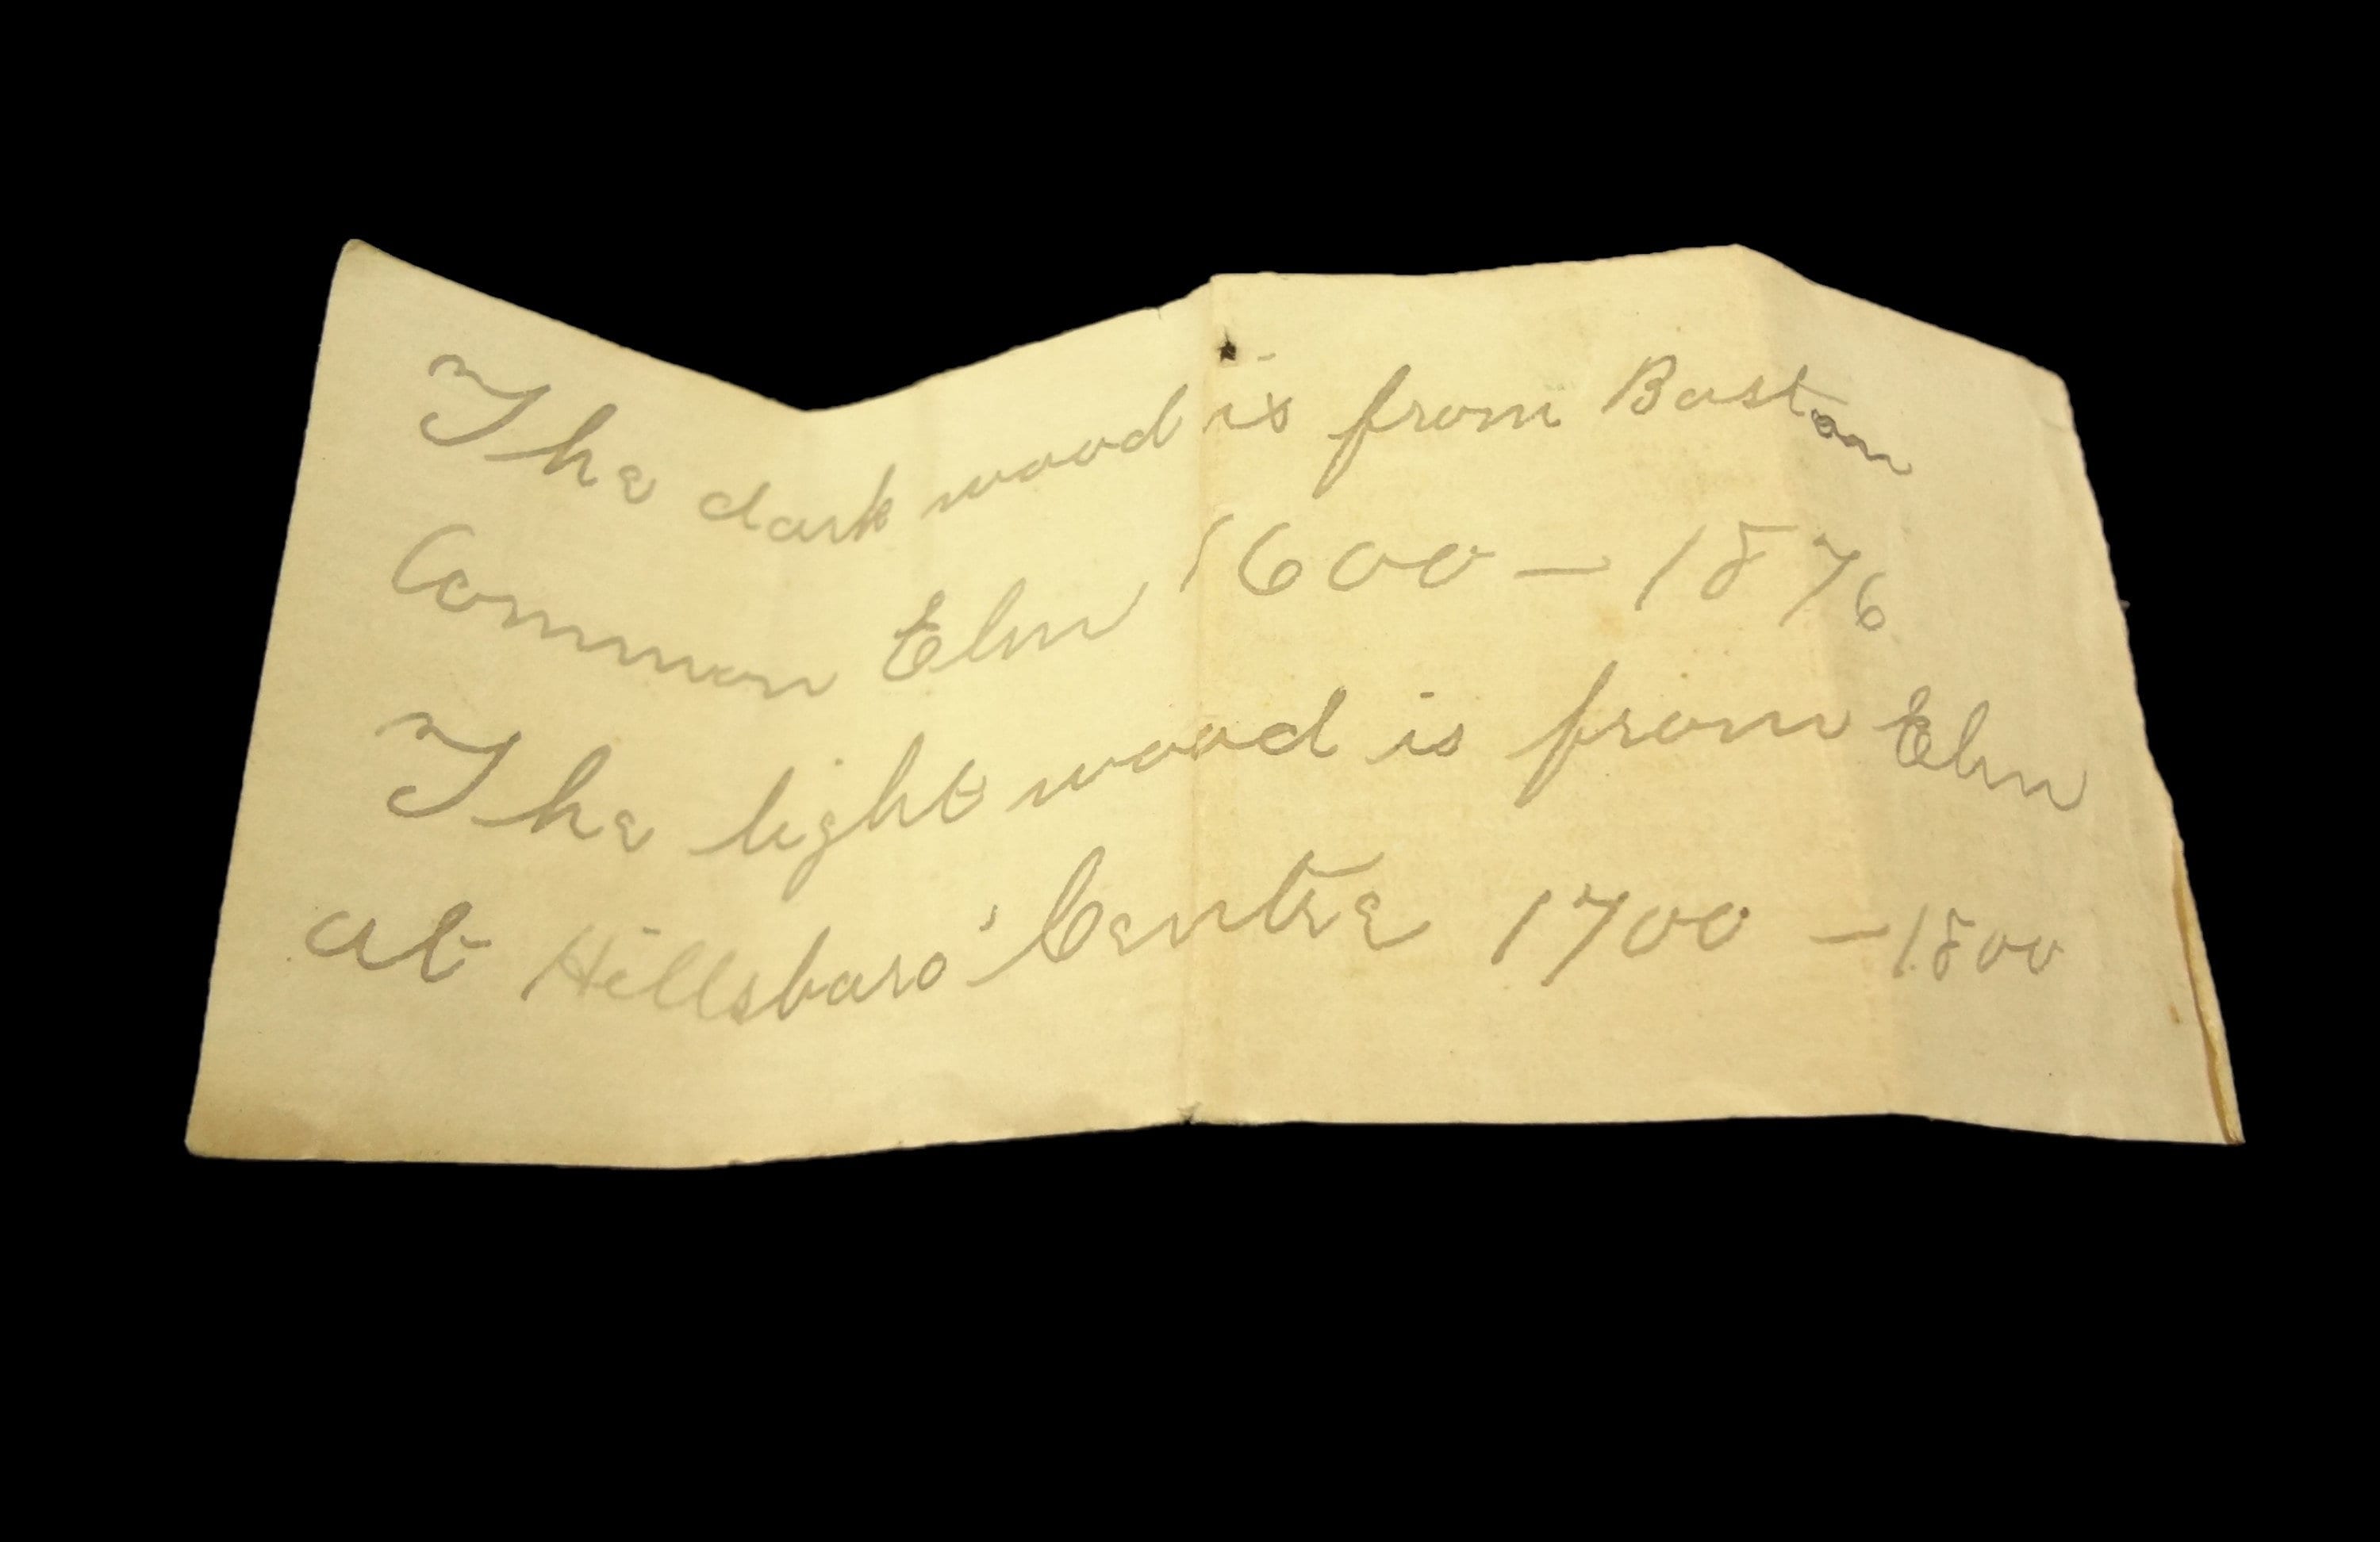 The dark wood is from Boston
Common Elm 1600 — 1876
The light wood is from Elm
at Hillsboro' Centre 1700 — 1800